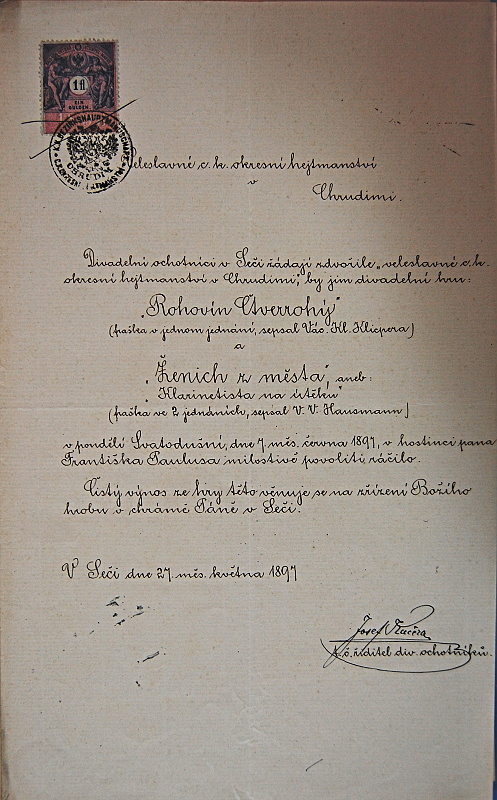 1 fl
EIN
GULDEN.
K.K. BEZIRKSHAUPTMANNSCHAFT
CHRUDIM
Veleslavné c. k. okresní hejtmanství
v
Chrudimi.
Divadelní ochotníci v Seči žádají zdvořile „veleslavné c. k.
okresní hejtmanství v Chrudimi", by jim divadelní hru:
„Rohovín Čtverrohý"
(fraška v jednom jednání, sepsal Vác. Kl. Klicpera)
a
„Ženich z města", aneb:
„Klarinetista na útěku"
(fraška ve 2 jednáních, sepsal V. V. Hausmann)
v pondělí Svatodušní, dne 7. měs. června 1897, v hostinci pana
Františka Paulusa milostivě povoliti ráčilo.
Čistý výnos ze hry této věnuje se na zřízení Božího
hrobu v chrámě Páně v Seči.
V Seči dne 27. měs. května 1897
Josef
řiditel div. ochotníků.